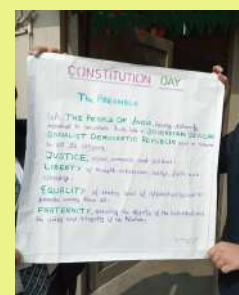 CONSTITUTION DAY
The PREAMBLE
WE, THE PEOPLE OF INDIA, having solemnly
resolved to constitute India into a SOVEREIGN
SOCIALIST DEMOCRATIC REPUBLIC and to
to all its citizens
JUSTICE, social, economic and political;
LIBERTY of thought, expression, belief, faith and
worship;
EQUALITY of status and of opportunity; and to
promote among them all
FRATERNITY, assuring the dignity of the individual and
the unity and integrity of the Nation.